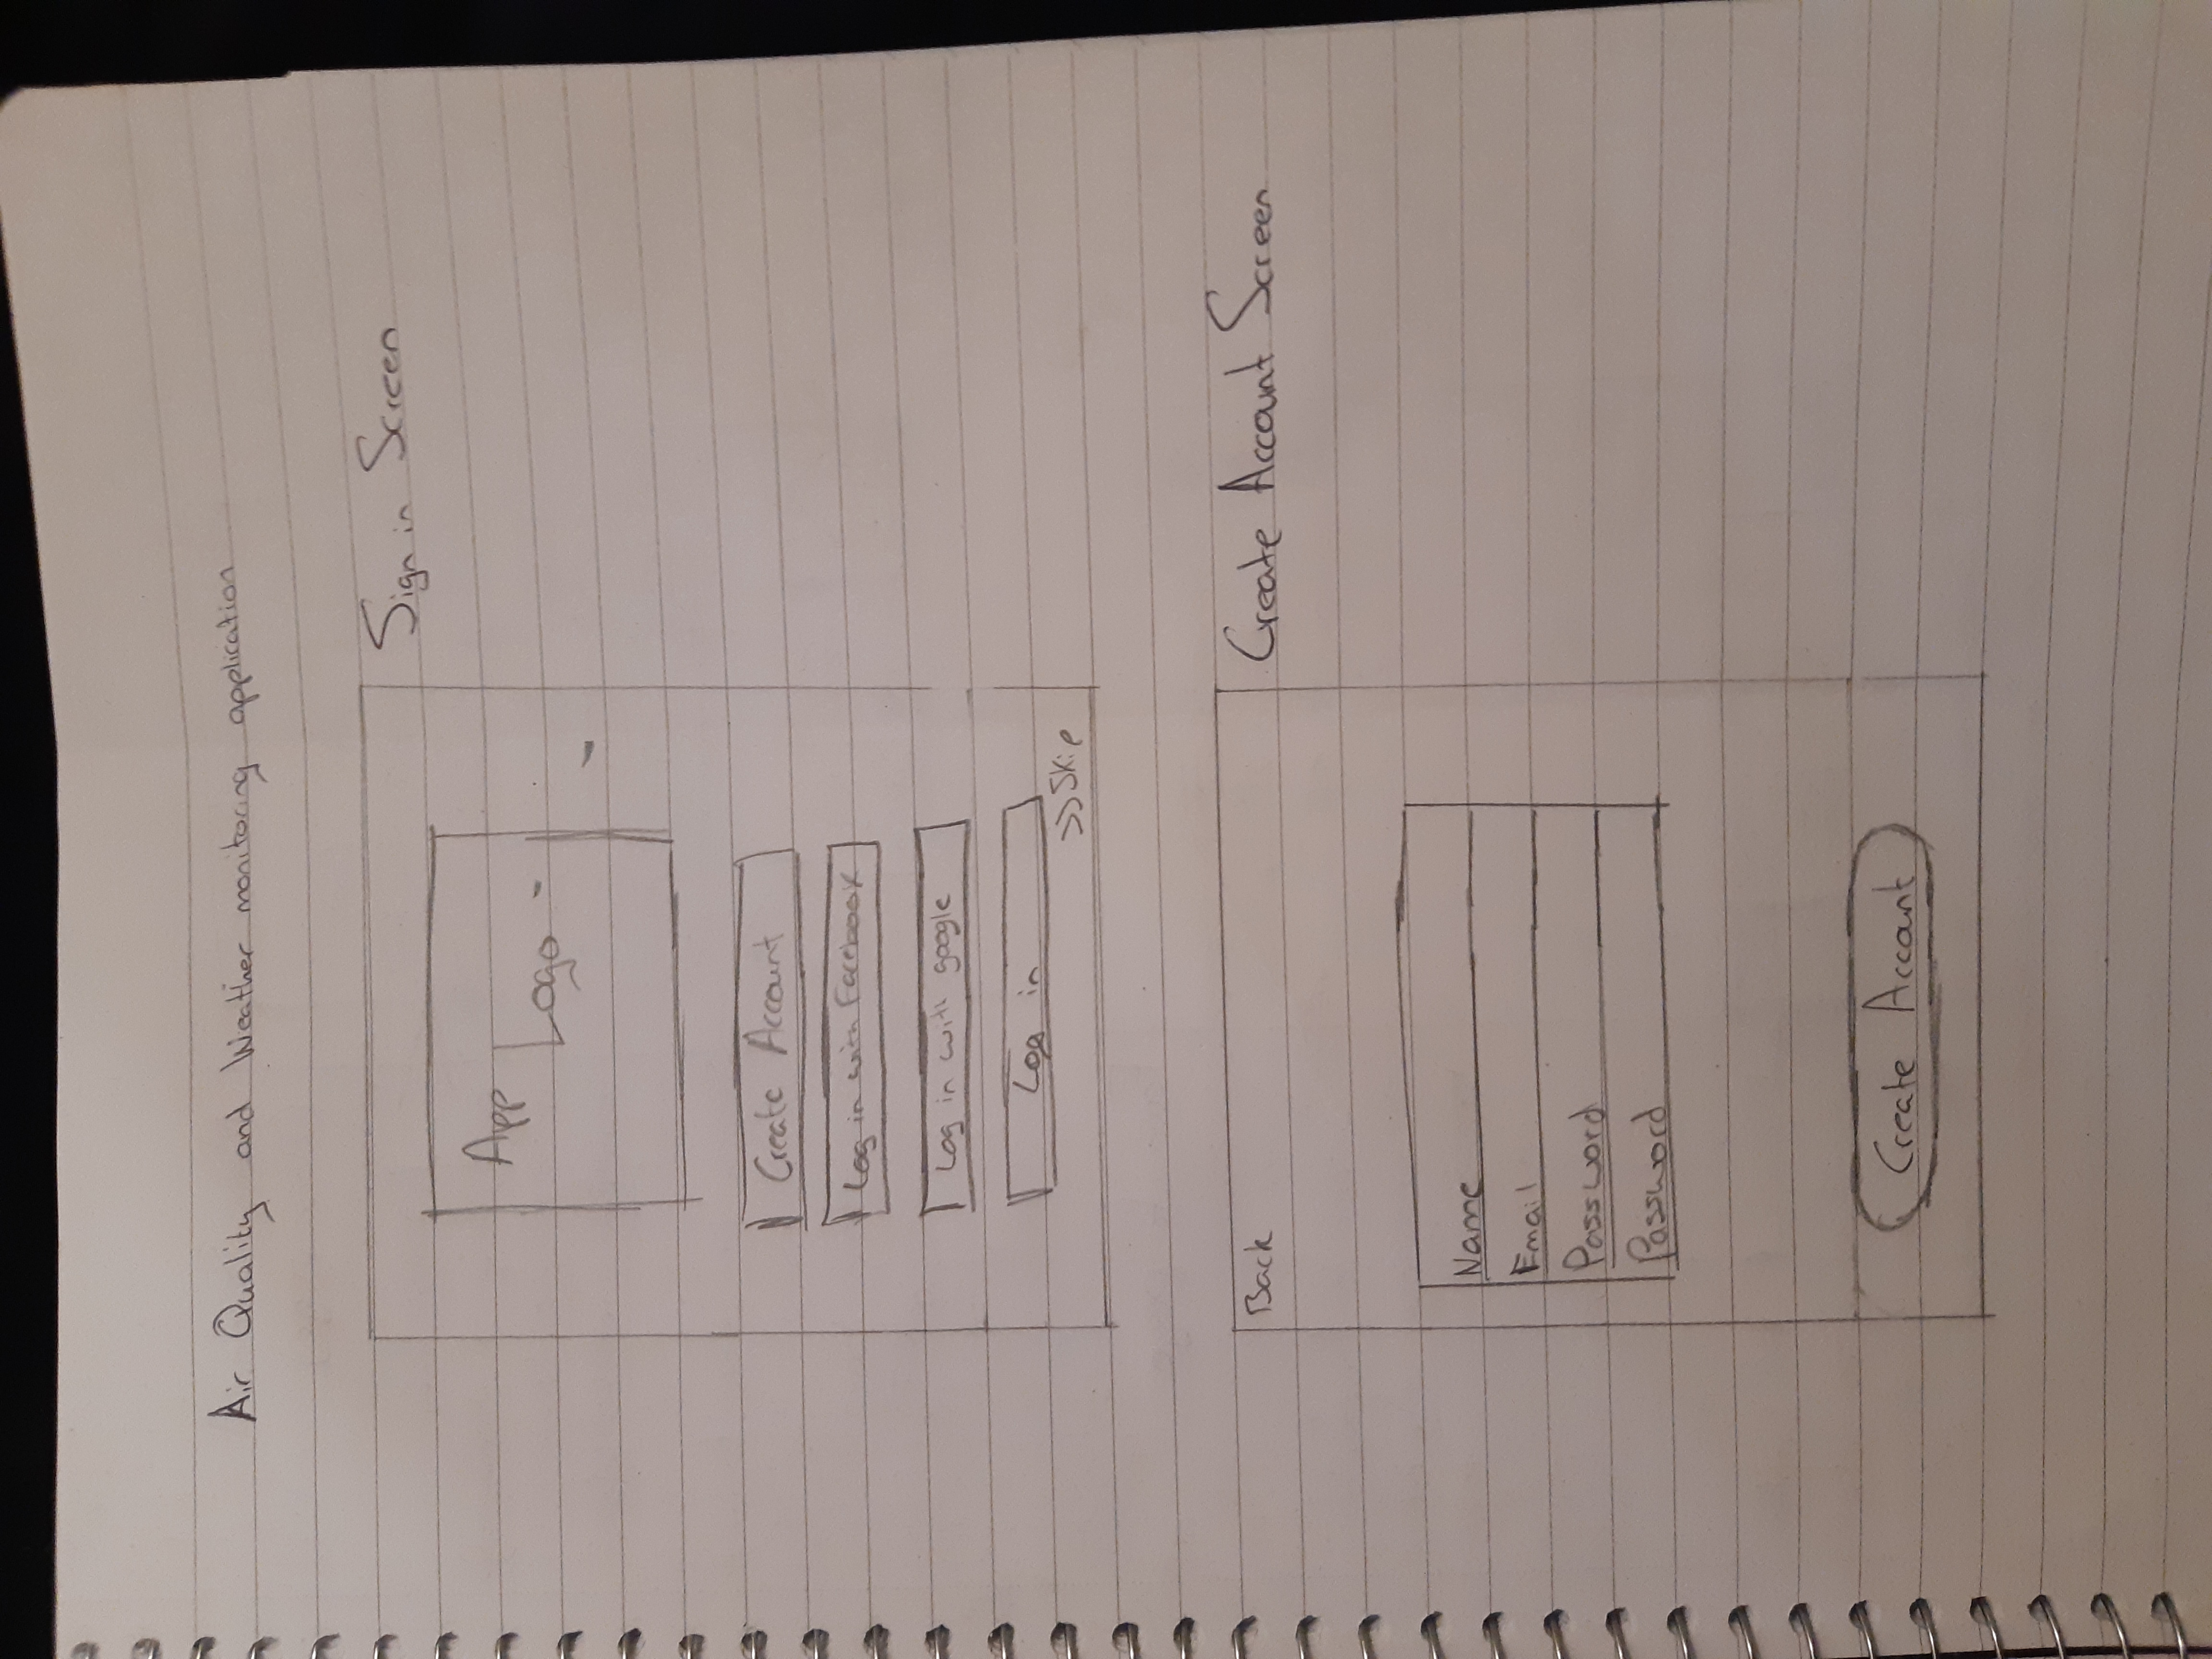 Air Quality and Weather monitoring application
Sign in Screen
App
Logo
Create Account
Log in with Facebook
Log in with google
Log in
>>Skip
Create Account Screen
Back
Name
Email
Password
Password
Create Account